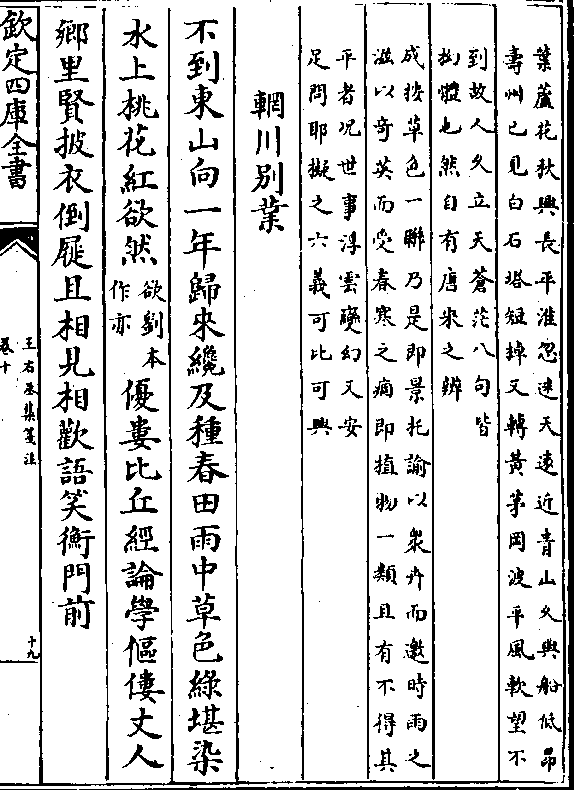 葉蘆花秋興長平淮忽迷天遠近青山久與船低昂
壽州已見白石塔短棹又轉黃茅岡波平風軟望不
到故人久立天蒼茫八句皆
拗體也然自有唐宋之辨
成按草色一聯乃是即景托諭以衆卉而邀時雨之
滋以奇英而受春寒之痼即植物一類且有不得其
平者況世事浮雲變幻又安
足問耶擬之六義可比可興
輞川別業
不到東山向一年歸來纔及種春田雨中草色綠堪染
水上桃花紅欲然欲劉本作亦優婁比丘經論學傴僂丈人
鄉里賢披衣倒屣且相見相歡語笑衡門前
欽定四庫全書
王右丞集箋注
卷十
十九